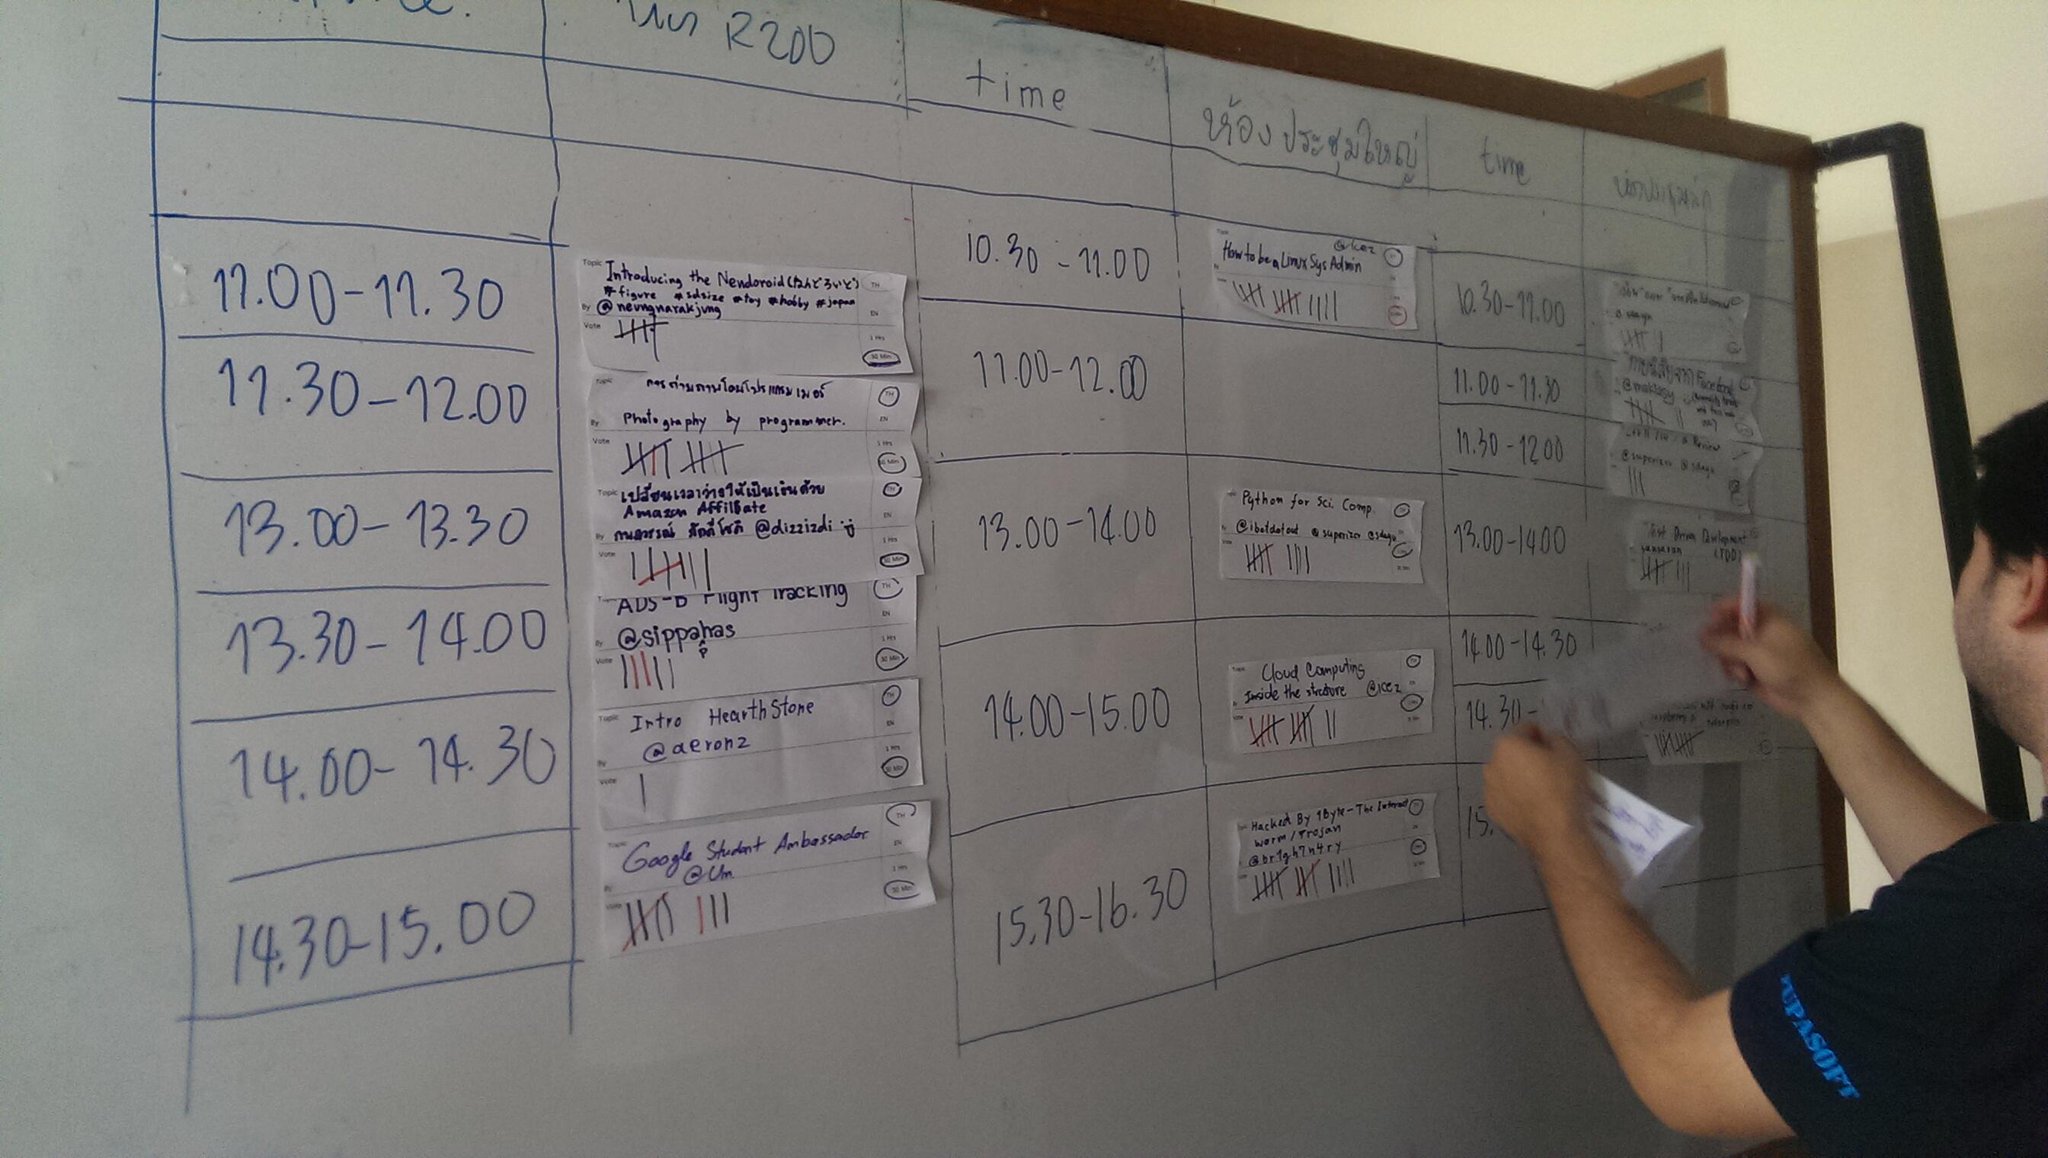 R200
time
ห้องประชุมใหญ่
time
11.00-11.30
Topic Introducing the Nendoroid (ねんどろいど)
#figure #sdsize #toy #hobby #japan
By @neungnarakjung
Vote
TH
EN
1 Hrs
30 Min
11.30-12.00
Topic การถ่ายภาพโดยโปรแกรมเมอร์
By Photography by programmer.
Vote
TH
EN
1 Hrs
30 Min
13.00-13.30
Topic เปลี่ยนเวลาว่างให้เป็นเงินด้วย
Amazon Affiliate
By @dizzizdi
Vote
TH
EN
1 Hrs
30 Min
13.30-14.00
ADS-B Flight Tracking
By @sippahas
p
Vote
TH
EN
1 Hrs
30 Min
14.00-14.30
Topic Intro HearthStone
@aeronz
By
Vote
TH
EN
1 Hrs
30 Min
14.30-15.00
Topic Google Student Ambassador
By @Um
Vote
TH
EN
1 Hrs
30 Min
10.30-11.00
@icez
How to be a Linux Sys Admin
11.00-12.00
13.00-14.00
Python for Sci. Comp.
@ibotdotout @superizer @sdayu
14.00-15.00
Cloud Computing
Inside the structure @icez
15.30-16.30
Hacked By 1Byte-The Internet
worm/trojan
@br1gh7n4ry
10.30-11.00
11.00-11.30
Facebook
11.30-12.00
a Review
@superizer @sdayu
13.00-14.00
Test Driven Development
(TDD)
14.00-14.30
14.30-
15.
UPASOFT